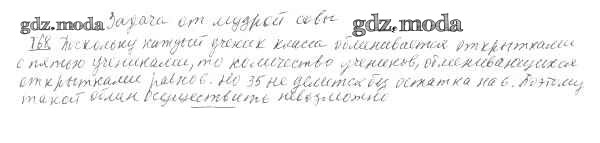 gdz.moda Задача от мудрой совы gdz.moda
768. Поскольку каждый ученик класса обменивается открытками
с пятью учениками, то количество учеников, обменивающихся
открытками равно 6. Но 35 не делится без остатка на 6. Поэтому
такой обмен осуществить невозможно